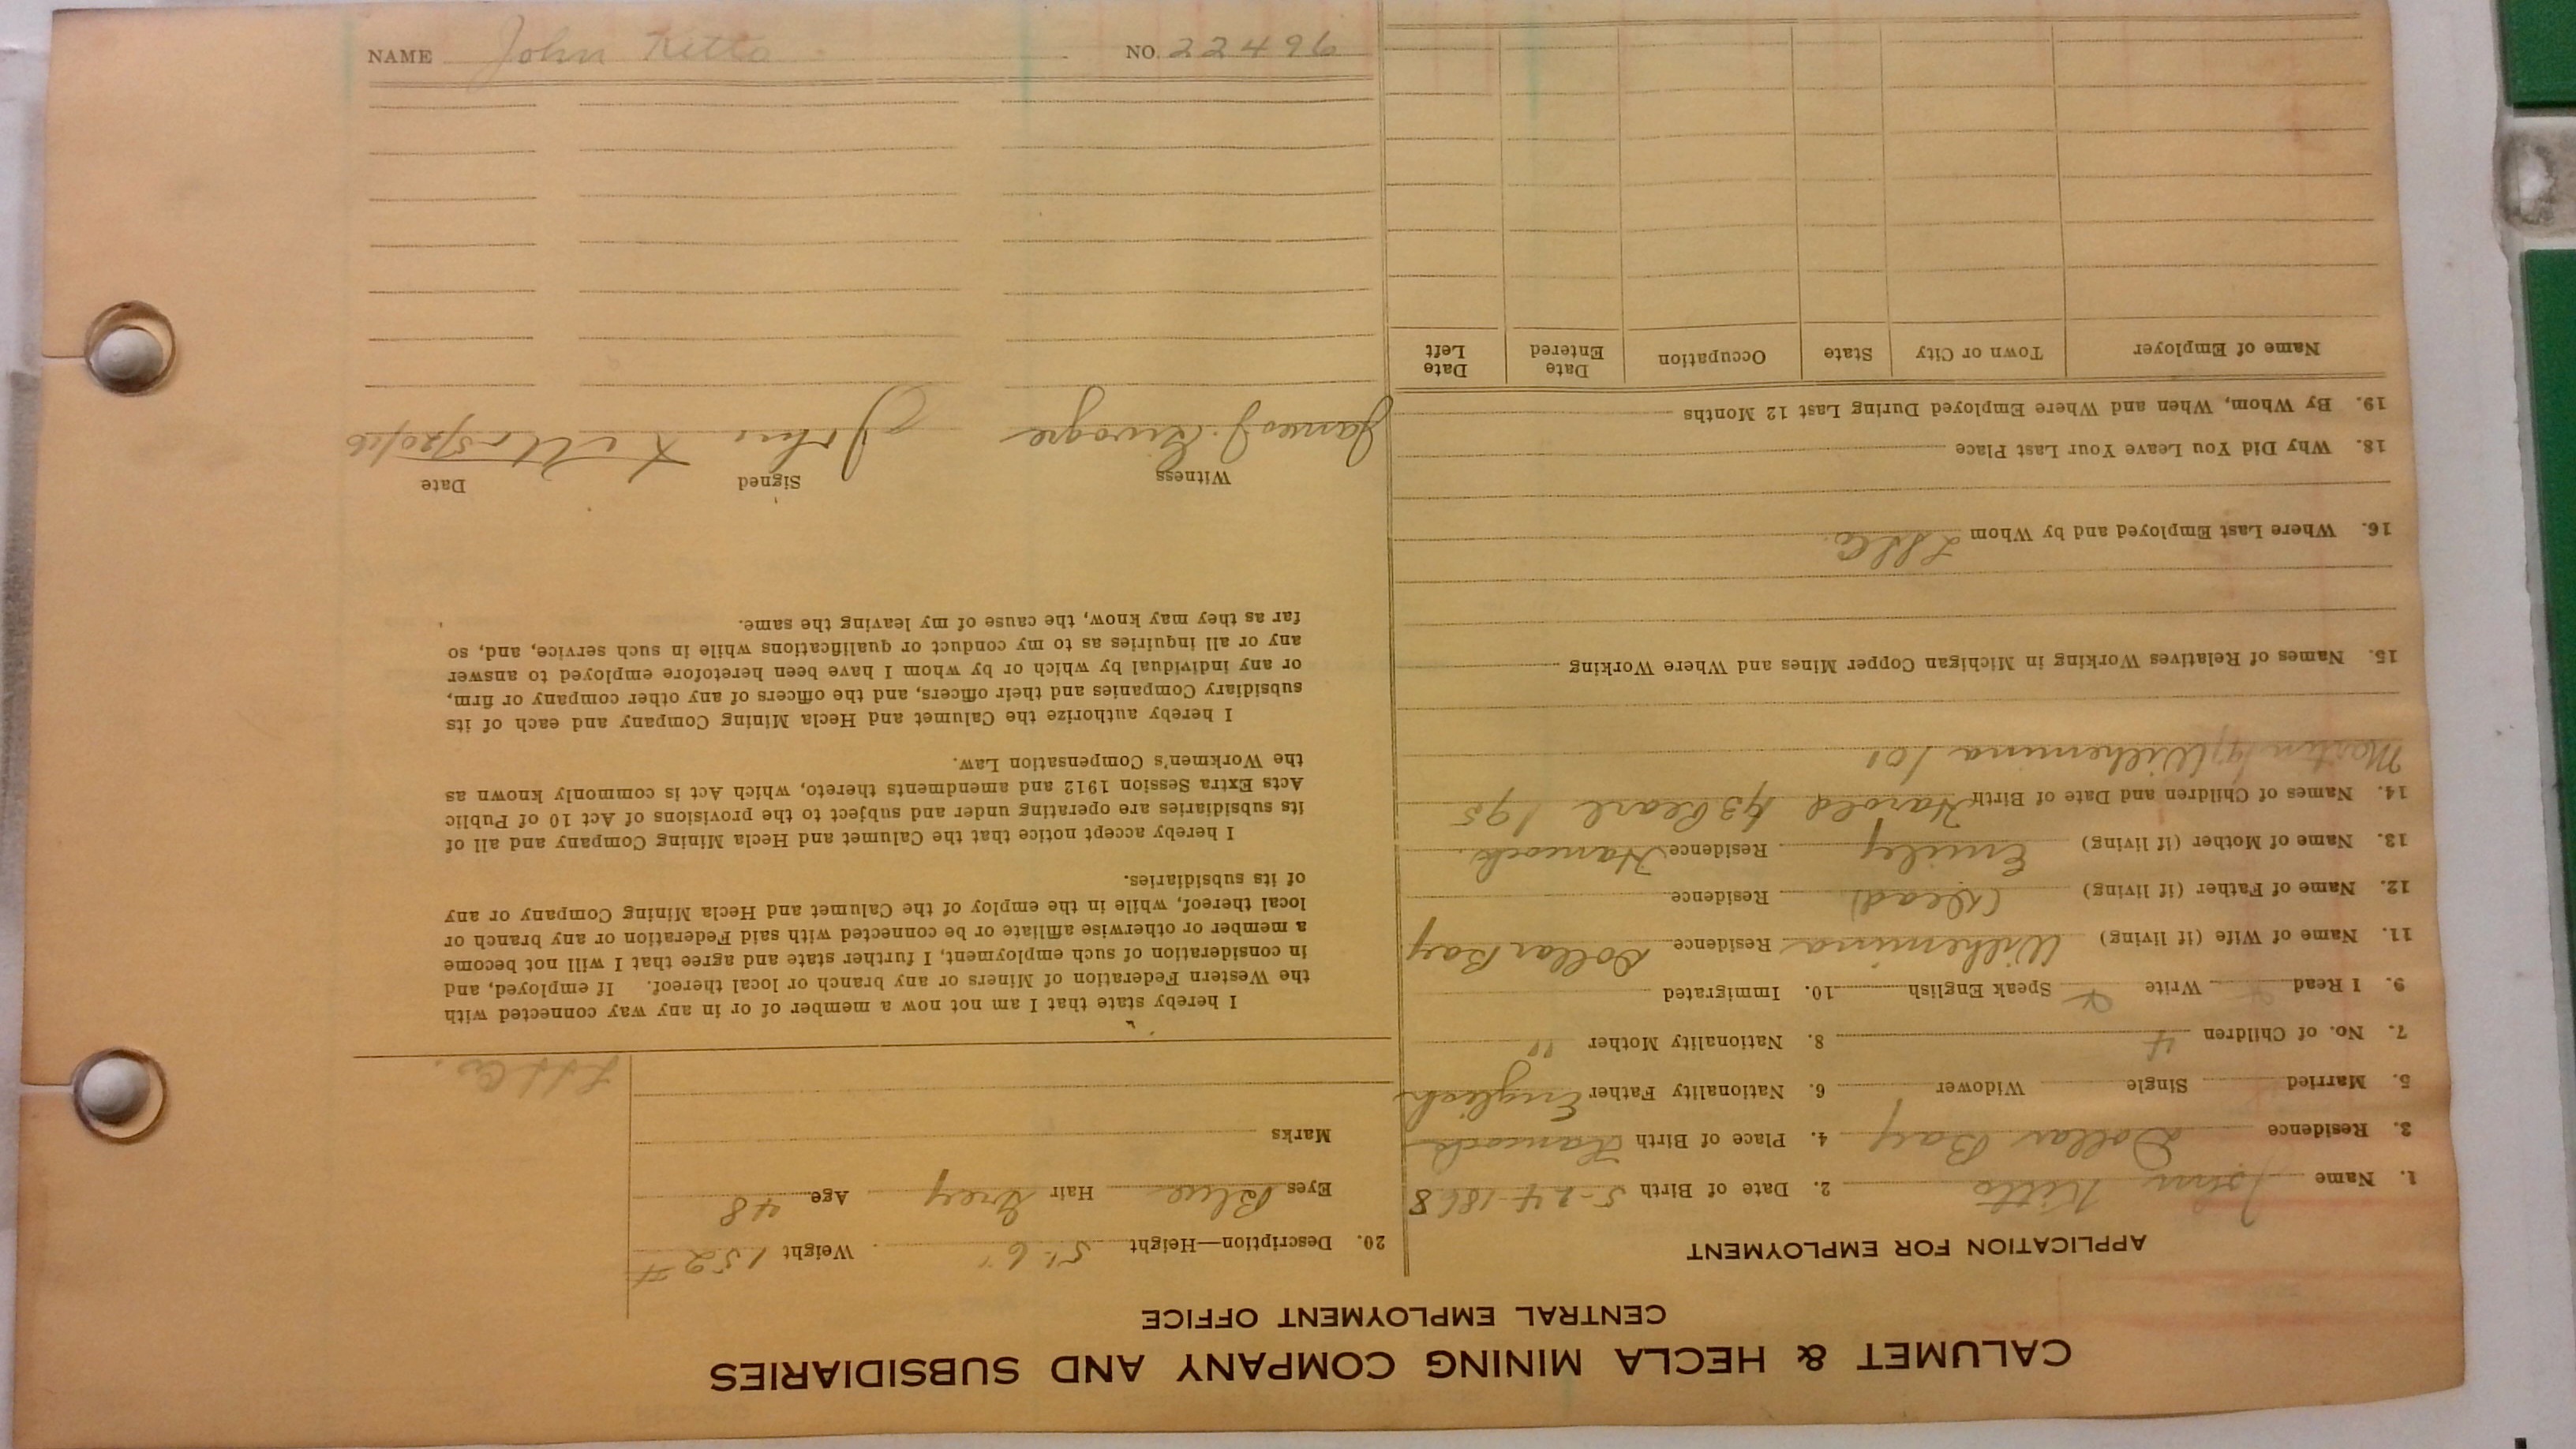 CALUMET & HECLA MINING COMPANY AND SUBSIDIARIES
CENTRAL EMPLOYMENT OFFICE
APPLICATION FOR EMPLOYMENT
1. Name John Kitto 2. Date of Birth 5-24-1868
3. Residence Dollar Bay 4. Place of Birth Hancock
5. Married Single Widower 6. Nationality Father English
7. No. of Children 4 8. Nationality Mother "
9. I Read Write Speak English 10. Immigrated
11. Name of Wife (if living) Wilhemina Residence Dollar Bay
12. Name of Father (if living) (Dead) Residence
13. Name of Mother (if living) Emily Residence Hancock
14. Names of Children and Date of Birth Harold Pearl
Martin Wilhemina
15. Names of Relatives Working in Michigan Copper Mines and Where Working
16. Where Last Employed and by Whom
18. Why Did You Leave Your Last Place
19. By Whom, When and Where Employed During Last 12 Months
Name of Employer Town or City State Occupation Date Entered Date Left
20. Description—Height 5' 6" Weight 152#
Eyes Blue Hair Grey Age 48
Marks
I hereby state that I am not now a member of or in any way connected with
the Western Federation of Miners or any branch or local thereof. If employed, and
in consideration of such employment, I further state and agree that I will not become
a member or otherwise affiliate or be connected with said Federation or any branch or
local thereof, while in the employ of the Calumet and Hecla Mining Company or any
of its subsidiaries.
I hereby accept notice that the Calumet and Hecla Mining Company and all of
its subsidiaries are operating under and subject to the provisions of Act 10 of Public
Acts Extra Session 1912 and amendments thereto, which Act is commonly known as
the Workmen's Compensation Law.
I hereby authorize the Calumet and Hecla Mining Company and each of its
subsidiary Companies and their officers, and the officers of any other company or firm,
or any individual by which or by whom I have been heretofore employed to answer
any or all inquiries as to my conduct or qualifications while in such service, and, so
far as they may know, the cause of my leaving the same.
Witness Signed Date
James J. John Kitto 5/20/16
NAME John Kitto NO. 22496